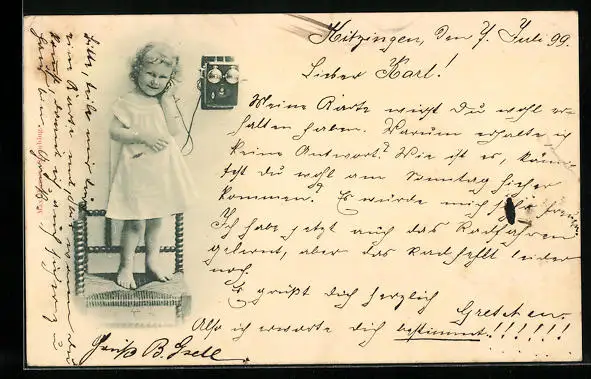 Kitzingen, den 7. Juli 99.
Lieber Karl!
Meine Karte wirst Du wohl er-
halten haben. Warum erhalte ich
keine Antwort? Wie ist es, könn-
test Du wohl am Sonntag hieher
kommen? Es würde mich sehr freuen.
Ich habe jetzt auch das Radfahren
gelernt, aber das Rad fehlt leider
noch.
Es grüßt dich herzlich Gretchen.
Also ich erwarte dich bestimmt!!!!!!!
Gruß B. Gsell
Bitte, teile mir in
einer Karte mit, ob
kommst, damit ich